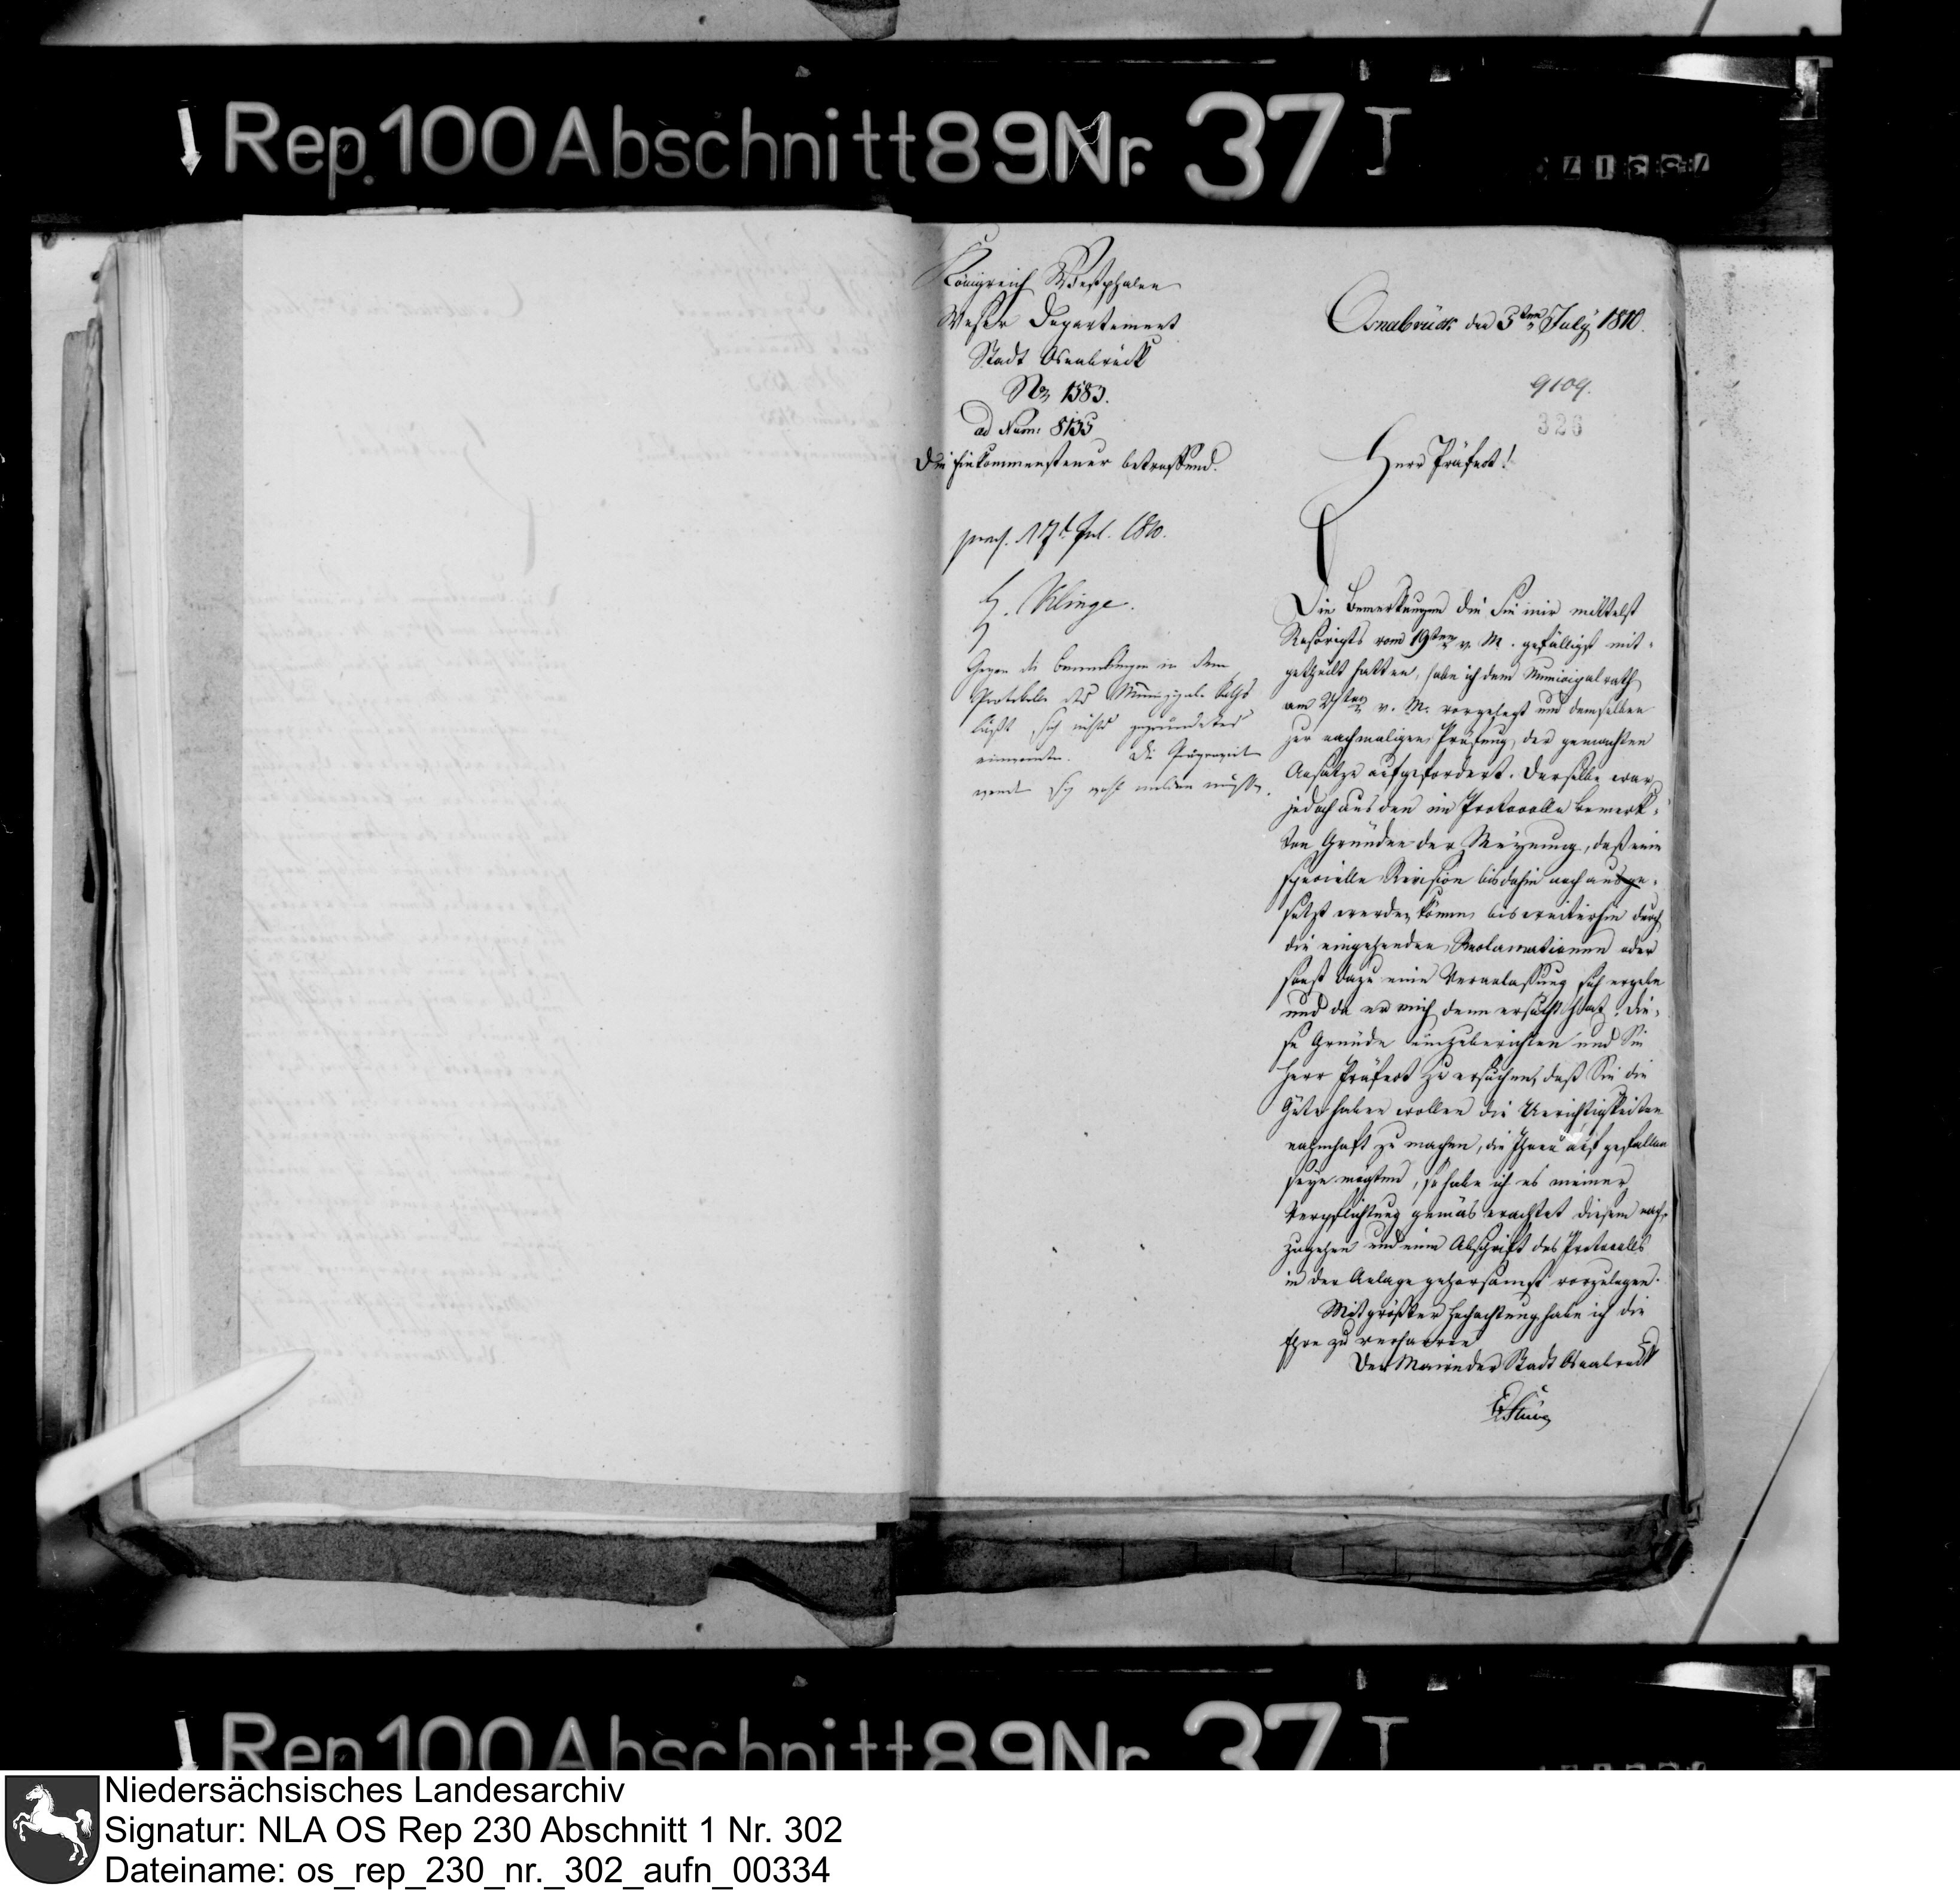 Rep. 100 Abschnitt 89 Nr. 37 I
Königreich Westphalen
Weser Departement
Stadt Osnabrück
No 1583.
ad Num: 8135
Die Einkommensteuer betreffend.
praes. 17t Jul. 1810.
H. Klinge.
Gegen die Bemerkungen in dem
Protokolle des Munizipal Raths
läßt sich nichts gegründetes
einwenden. Die
werden sich wohl melden müssen.
Osnabrück den 3ten July 1810.
9109.
326
Herr Präfect!
Die Bemerkungen die Sie mir mittelst
Rescripts vom 19ten v. M. gefälligst mit-
getheilt hatten, habe ich dem Municipalrath
am v. M. vorgelegt und demselben
zur nachmaligen Prüfung der gemachten
Ansätze aufgefordert. Derselbe war
jedoch aus den im Protocolle bemerk-
ten Gründen der Meynung, daß eine
specielle Revision bis dahin noch ausge-
setzt werden könne, bis weiterhin durch
die eingehenden Reclamationen oder
sonst dazu eine Veranlaßung sich ergebe
und da er mich denn ersucht hat, die-
se Gründe einzuberichten und Sie
Herr Präfect zu ersuchen, daß Sie die
Güte haben wollen die Unrichtigkeiten
nahmhaft zu machen, die Ihnen aufgefallen
seyn mögten, so habe ich es meiner
Verpflichtung gemäs erachtet diesem nach-
zugehen und eine Abschrift des Protocolls
in der Anlage gehorsamst vorzulegen.
Mit größter Hochachtung habe ich die
Ehre zu verharren
Der Maire der Stadt Osnabrück
Stüve
Rep. 100 Abschnitt 89 Nr. 37 I
Niedersächsisches Landesarchiv
Signatur: NLA OS Rep 230 Abschnitt 1 Nr. 302
Dateiname: os_rep_230_nr._302_aufn_00334